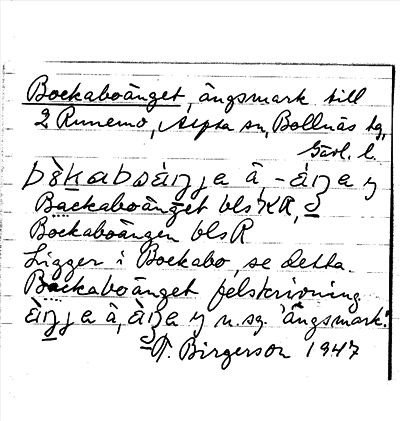 Bockaboänget, ängsmark till
2 Runemo, Alfta sn, Bollnäs tg,
Gävl. l.
Backaboänget bls KR,
Bockaboängen bls R
Ligger i Bockabo, se detta.
Backaboänget felskrivning.
n. sg. 'Ängsmark'.
T. Birgerson 1947